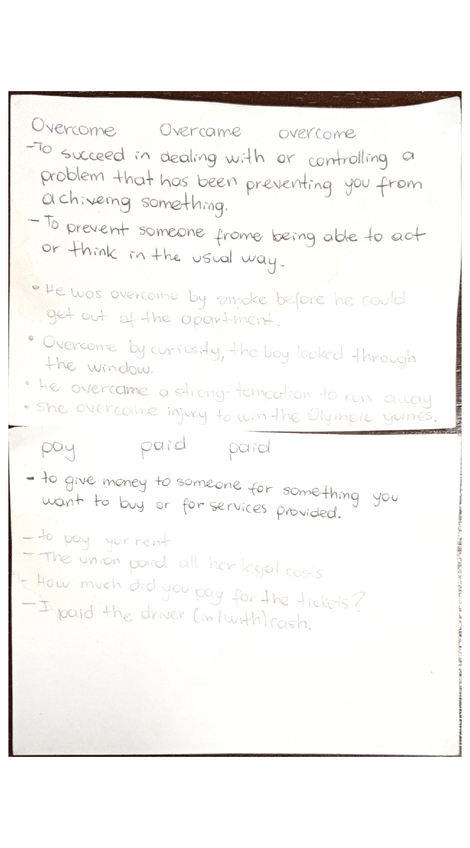 Overcome Overcame overcome
-To succeed in dealing with or controlling a
problem that has been preventing you from
achiveing something.
- To prevent someone frome being able to act
or think in the usual way.
• He was overcome by smoke before he could
get out of the apartment.
• Overcome by curiosity, the boy looked through
the window.
• He overcame a strong temtation to run away
• She overcame injury to win the Olympic games.
pay paid paid
- to give money to someone for something you
want to buy or for services provided.
- to pay your rent
- The union paid all her legal costs
- How much did you pay for the tickets?
- I paid the driver (in/with) cash.